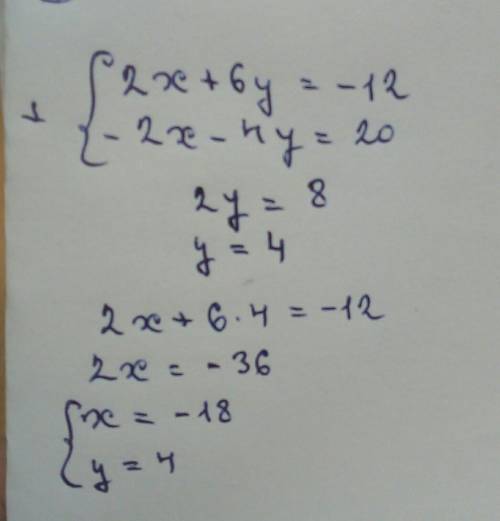 + { 2x + 6y = -12
- 2x - 4y = 20
2y = 8
y = 4
2x + 6·4 = -12
2x = -36
{ x = -18
y = 4